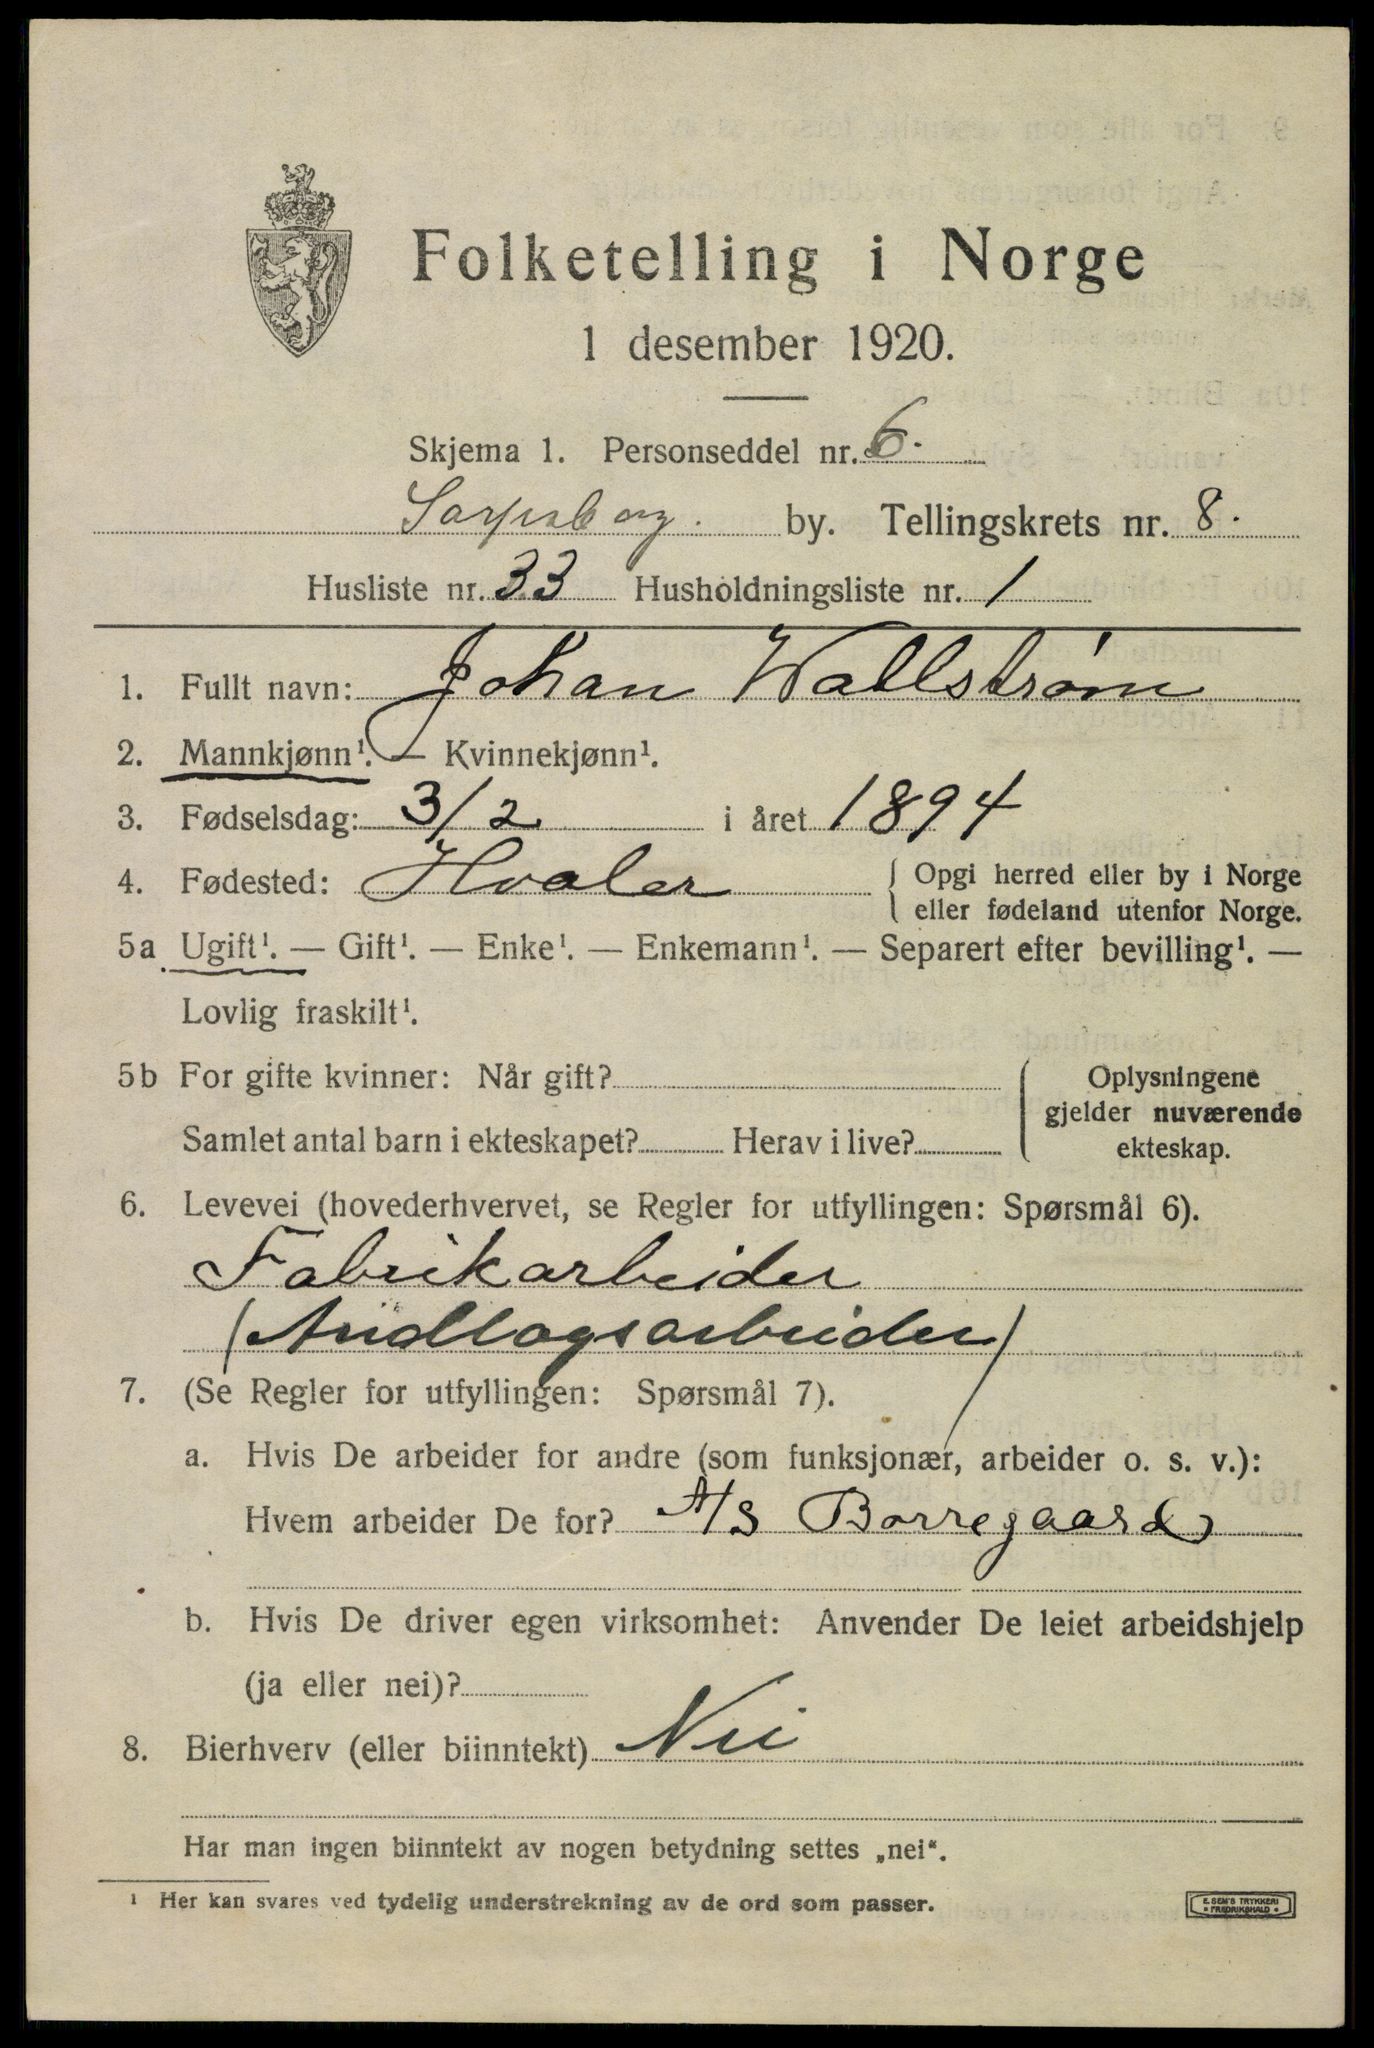 Folketelling i Norge
1 desember 1920.
Skjema 1. Personseddel nr. 6.
Sarpsborg. by. Tellingskrets nr. 8.
Husliste nr. 33 Husholdningsliste nr. 1
1. Fullt navn: Johan Wallstrøm
2. Mannkjønn¹. — Kvinnekjønn¹.
3. Fødselsdag: 3/2 i året 1894
4. Fødested: Hvaler { Opgi herred eller by i Norge
eller fødeland utenfor Norge.
5a Ugift¹. — Gift¹. — Enke¹. — Enkemann¹. — Separert efter bevilling¹. —
Lovlig fraskilt¹.
5b For gifte kvinner: Når gift?
Samlet antal barn i ekteskapet? Herav i live?
Oplysningene
gjelder nuværende
ekteskap.
6. Levevei (hovederhvervet, se Regler for utfyllingen: Spørsmål 6).
Fabrikarbeider
(Andlagsarbeider)
7. (Se Regler for utfyllingen: Spørsmål 7).
a. Hvis De arbeider for andre (som funksjonær, arbeider o. s. v.):
Hvem arbeider De for? A/S Borregaard
b. Hvis De driver egen virksomhet: Anvender De leiet arbeidshjelp
(ja eller nei)?
8. Bierhverv (eller biinntekt) Nei
Har man ingen biinntekt av nogen betydning settes „nei“.
¹ Her kan svares ved tydelig understrekning av de ord som passer.
E. SEM'S TRYKKERI
FREDRIKSHALD